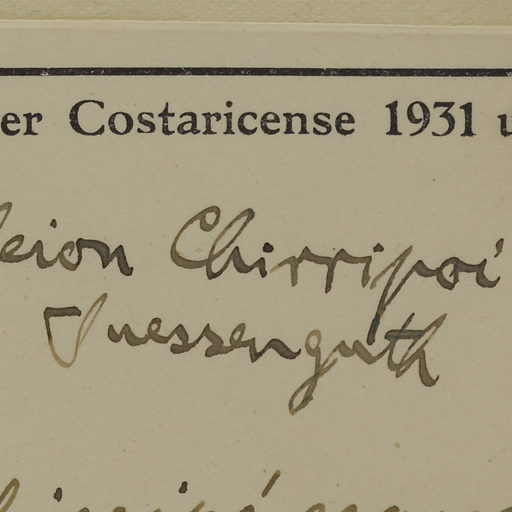 er Costaricense 1931 u
eion Chirripoi
Suessenguth